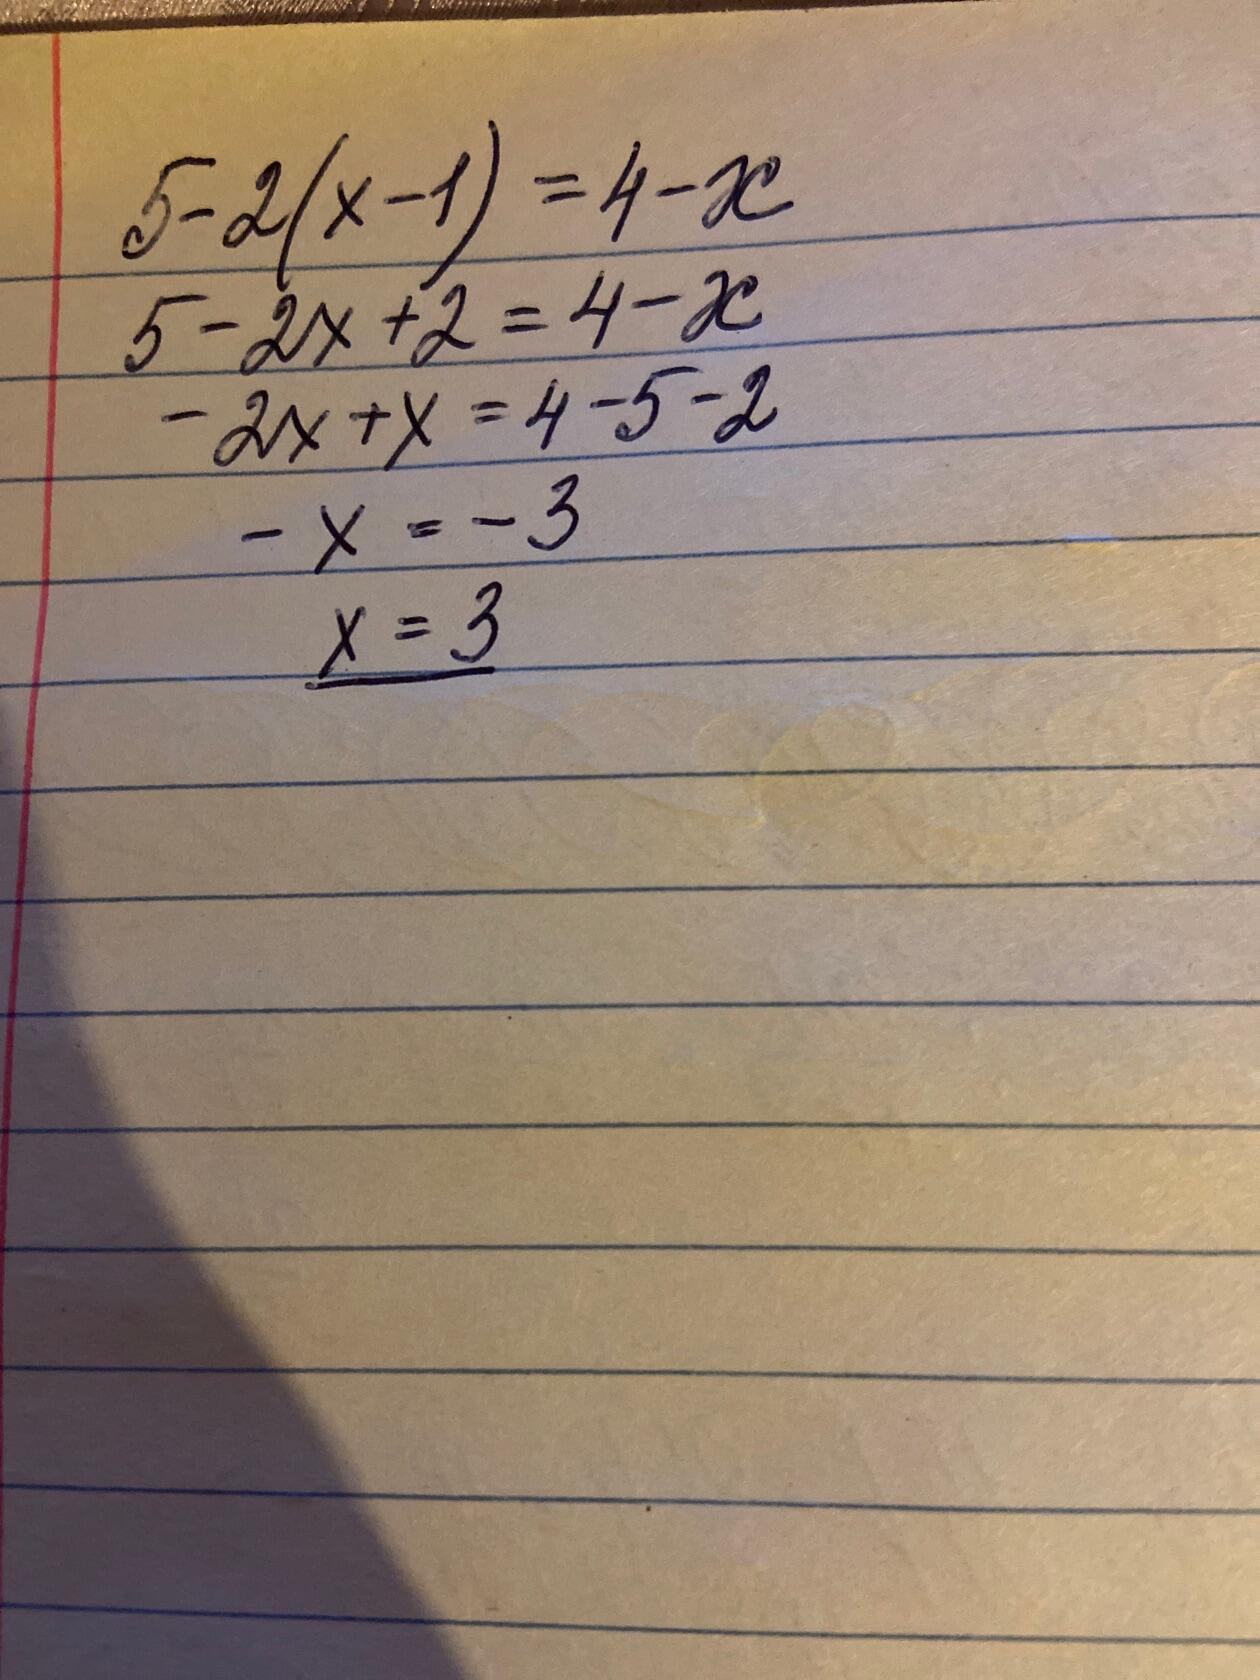 5-2(x-1) = 4-x
5-2x+2 = 4-x
-2x+x = 4-5-2
-x = -3
x = 3